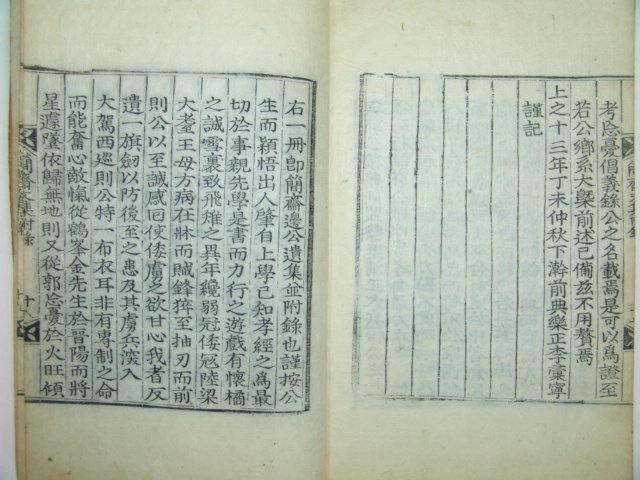 考忘憂倡義錄公之名載焉是可以爲證至
若公鄉系大槩前述已備玆不用贅焉
上之十三年丁未仲秋下澣前典樂正李彙寧
謹記
右一冊卽簡齋邊公遺集並附錄也謹按公
生而穎悟出人肇自上學已知孝經之爲最
切於事親先學是書而力行之遊戲有懷橘
之誠雪裏致飛雉之異年纔弱冠倭冦陸梁
大耋王母方病在牀而賊鋒猝至抽刃而前
則公以至誠感回使倭虜之欲甘心我者反
遺一旗劒以防後至之患及其虜兵深入
大駕西巡則公特一布衣耳非有專制之命
而能奮心敵愾從鶴峯金先生於晉陽而將
星遽墜依歸無地則又從郭忘憂於火旺傾
簡齋集附錄
十八